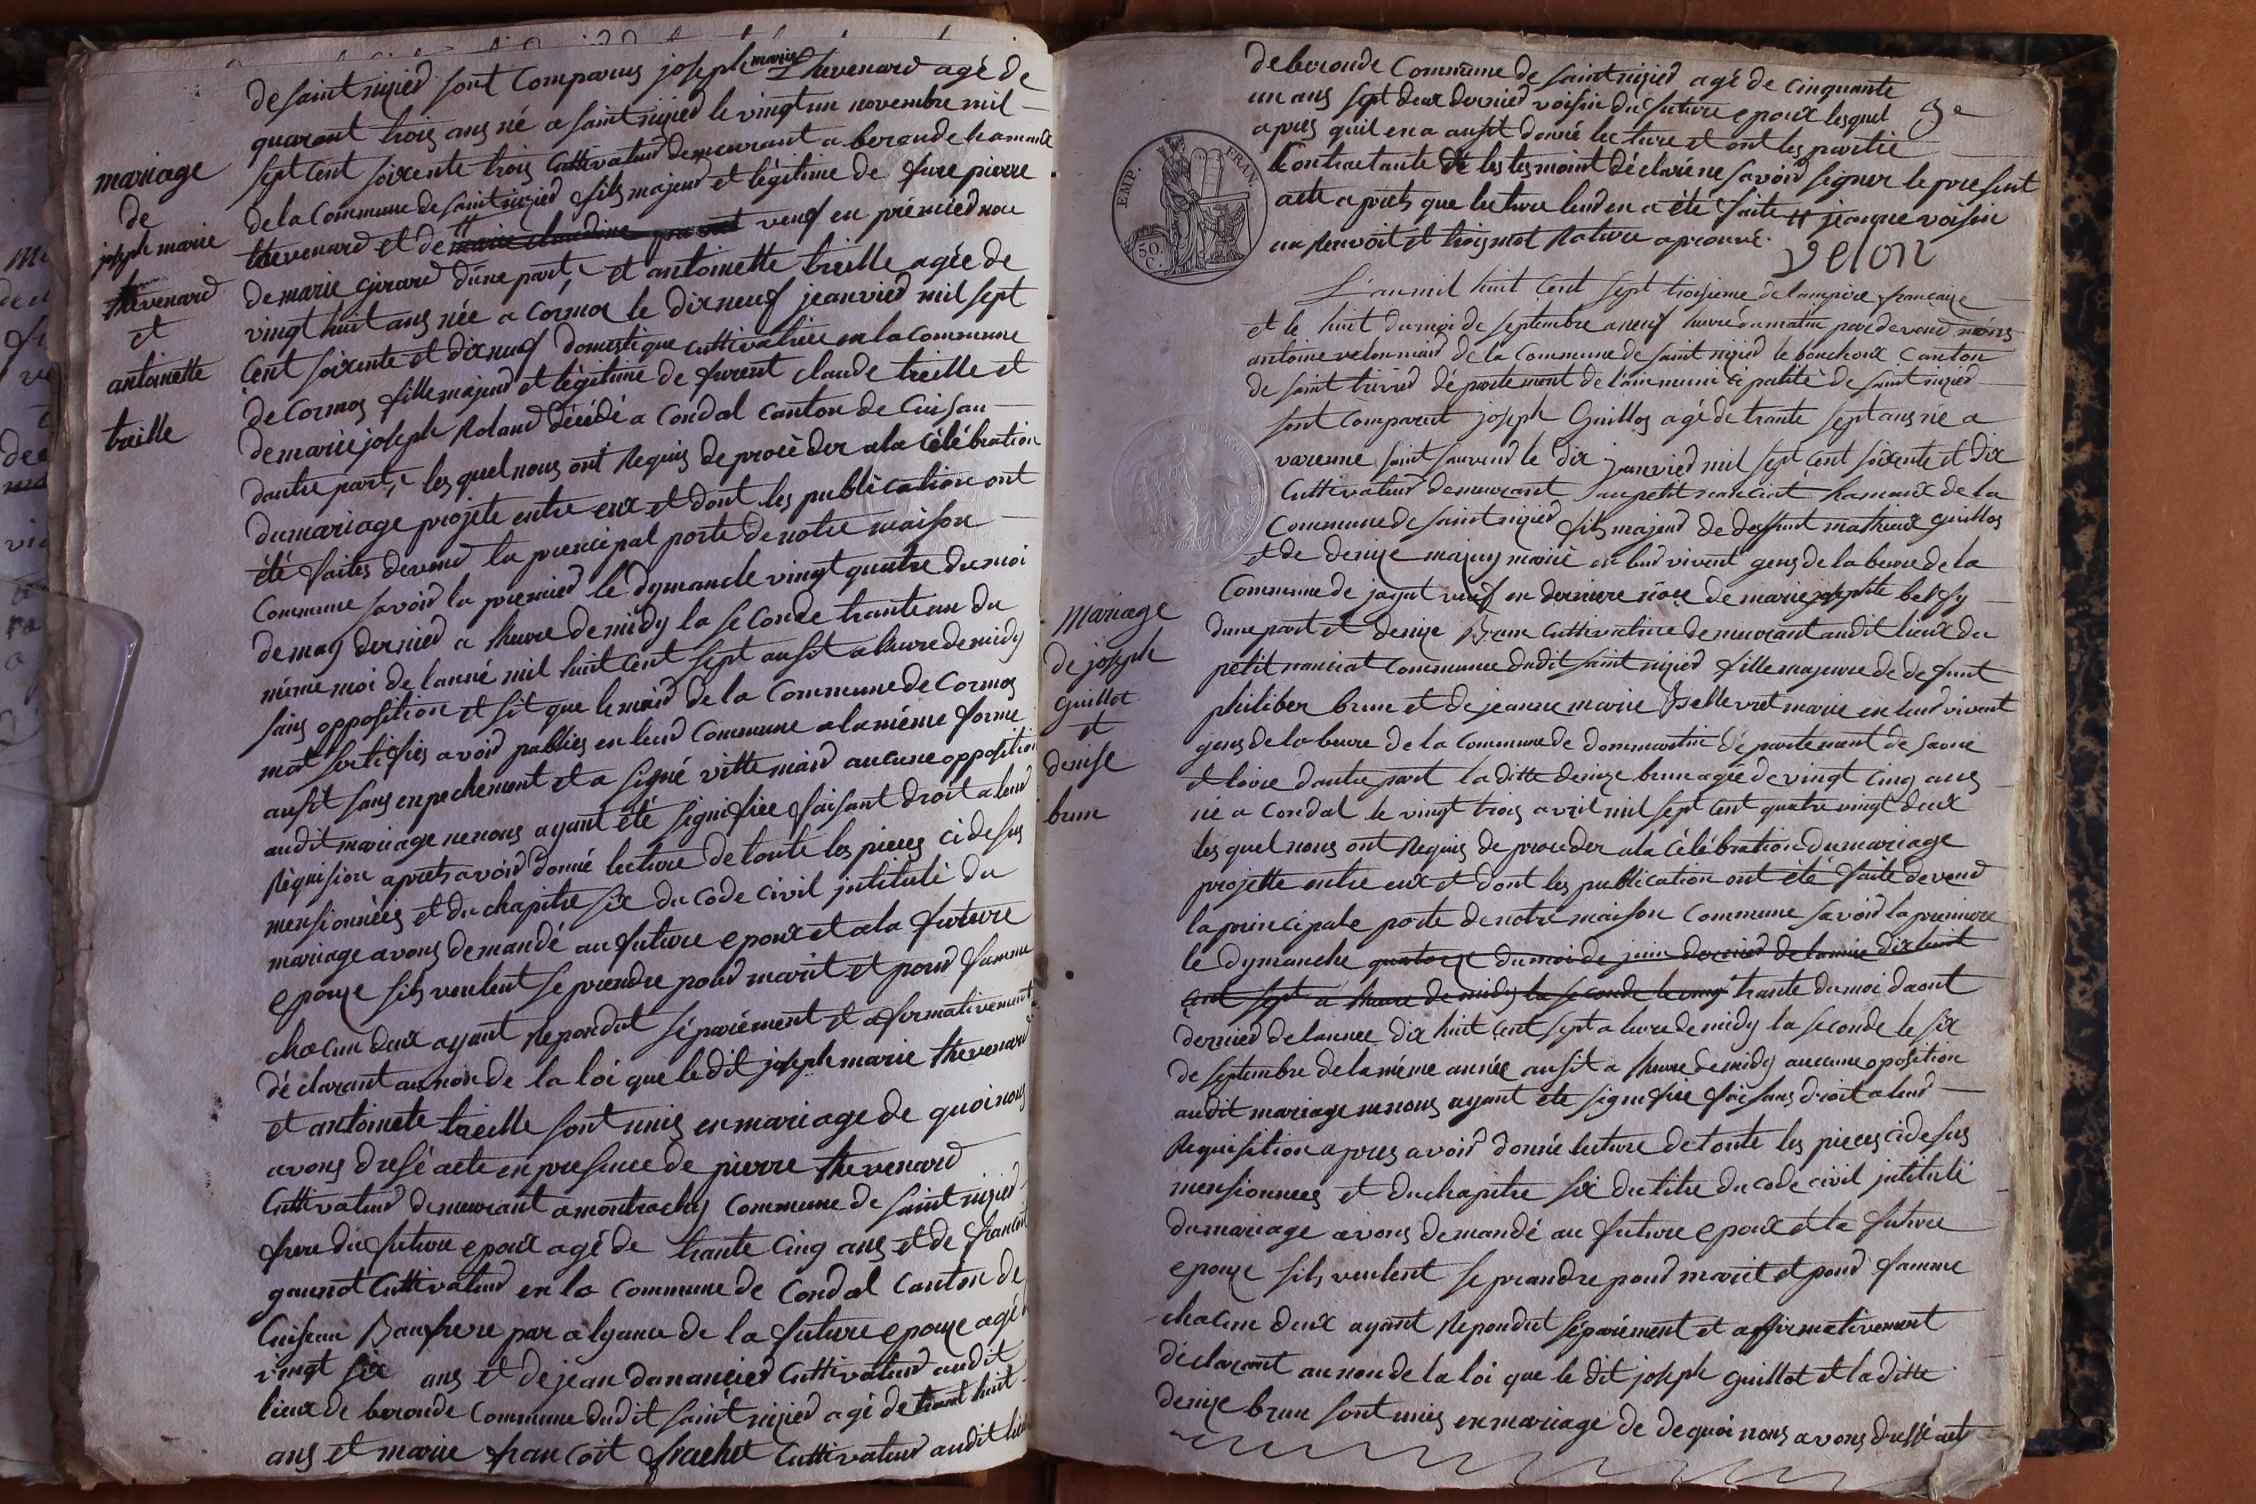 mariage
de
joseph marie
thevenard
et
antoinette
treille
de saint nizier sont Comparus joseph marie thevenard agé de
quarant trois ans né a saint nizier le vingt un novembre mil
sept cent soixente trois Cultivateur demeurant a beronde hamaude
de la Commune de saint nizier fils majeur et légitime de fure pierre
thevenard et de marie claudine veuf en prémier noce
de marie girard dune part, et antoinette treille agée de
vingt huit ans née a Cormoz le dix neuf jeanvier mil sept
Cent soixente et dix neuf domestique cultivatrice en la commune
de Cormos fille majeur et légitime de furent claude treille et
de marie joseph Roland décédé a Condal Canton de Cuisau
dautre part, les quel nous ont Requis de procéder a la célébration
du mariage projete entre eux et dont les publication ont
été faites devend la principal porte de notre maison
Commune savoir la premier le dymanche vingt quatre du moi
de may dernier a lheure de midy la seconde trante un du
même moi de lanné mil huit Cent sept ausit a lheure de midy
sans opposition et sit que le maire de la Commune de Cormoz
mat sertifies avoir publies en leur Commune a la même forme
ausit sans enpechement et a signé vitte maire aucune opposition
audit mariage ne nous ayant été signifiée faisant droit a leur
Réquision aprets avoir donné lecture de toute les pieces ci desus
mensionnéés et du chapitre six du Code civil jntitulé du
mariage avons demandé au future epoux et a la future
epouze sils veulent se prendre pour marit et pour famme
chacun deux ayant Repondut séparément et afirmativement
déclarant au non de la loi que le dit joseph marie thevenard
et antoinete treille sont unis en mariage de quoi nous
avons dresé acte en presence de pierre thevenard
Cultivateur demeurant a montrachy Commune de saint nizier
frere du future epoux agé de trante cinq ans et de francoit
gaunot Cultivateur en la Commune de Condal Canton de
Cuiseau Baufrere par alyance de la future epouze agé
vingt six ans et de jean danancier Cultivateur audit
lieux de beronde Commune dudit saint nizier agé de trant huit
ans et marie francoit frachet Cultivateur audit lieu
de beronde Commune de saint nizier agé de cinquante
un ans sept deux dernier voisin du future epoux lesquel
apres quil en a ausit donné lecture et ont les partie
Contractante et les tesmoint déclaré ne savoir signer le present
acte aprets que lecture leur en a été faite # jeanne voisin
un Renvoit et trois mot Rature aprouvé.
3e
velon
EMP. FRAN.
50 C.
mariage
de joseph
guillot
et
denise
brun
L'an mil huit Cent sept troisieme de lampire francaise
et le huit du moi de septembre a neuf heure du matin par devend nous
antoine velon maire de la Commune de saint nizier le bouchoux Canton
de saint trivier département de l'ain municipalité de saint nizier
sont Comparut joseph Guillos agé de trante sept ans ne a
varenne saint sauveur le dix janvier mil sept Cent soixente et dix
Cultivateur demeurant au petit nanciat hamaux de la
Commune de saint nizier fils majeur de deffunt mathieux guillos
et de denize majuy marié en leur vivent gens de labeure de la
Commune de jayat veuf en derniere noce de marie josephte belfy
dune part et denize Brun Cultivatrice demeurant audit lieux du
petit nanciat Commune dudit saint nizier fille majeure de defunt
philiber brun et de jeanne marie marie en leur vivant
gens de labeure de la Commune de dommartin département de saone
et loire dautre part la ditte denize brun agée de vingt cinq ans
né a Condal le vingt trois avril mil sept Cent quatre vingt deux
les quel nous ont Requis de proceder a la célébration du mariage
projette entre eux et dont les publication ont été faite devend
la principale porte de notre maison Commune savoir la premiere
le dymanche quatorze du moi de juin dernier de lannée dix huit
cent sept a lheure de midy la seconde le vingt trante du moi daout
dernier de lannee dix huit Cent sept a heure de midy la seconde le six
de septembre de la méme année ausit a lheure de midy aucune oposition
audit mariage ne nous ayant été signifiée faisans droit a leur
Requisition apres avoir donné lecture de toute les pieces ci desus
mensionnees et du chapitre six du titre du code civil jntitulé
du mariage avons demandé au future epoux et la future
epouze sils veulent se prandre pour marit et pour famme
chacun deux ayant Repondut séparément et affirmativement
déclarant au non de la loi que le dit joseph guillot et la ditte
denize brun sont unis en mariage de de quoi nous avons dressé act